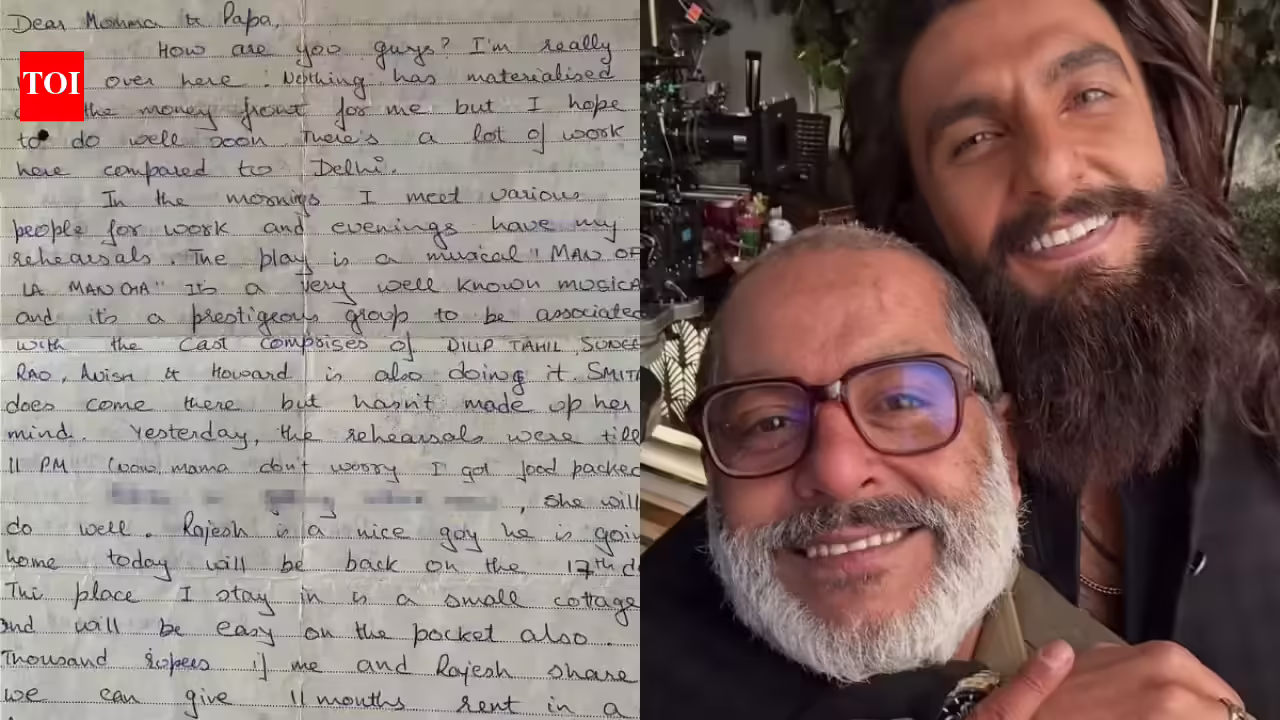 Dear Momma & Papa,
How are you guys? I'm really
TOI
over here. Nothing has materialised
the money front for me but I hope
to do well soon There's a lot of work
here compared to Delhi.
In the mornings I meet various
people for work and evenings have my
rehearsals. The play is a musical "MAN OF
LA MANCHA" Its a very well known musica
and it's a prestigeous group to be associated
with the cast comprises of DILIP TAHIL, SUNEE
RAO, Avish & Howard is also doing it. SMITA
does come there but hasn't made up her
mind. Yesterday, the rehearsals were till
11 PM (wow, mama dont worry I got food packed
, she will
do well. Rajesh is a nice guy he is goin
home today will be back on the 17th
The place I stay in is a small cottage
and will be easy on the pocket also.
Thousand rupees if me and Rajesh share
we can give 11 months rent in a